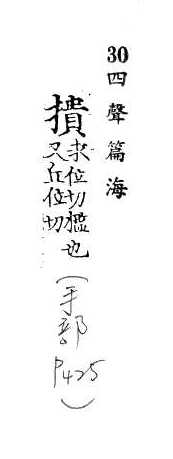 30 四聲篇海
撌 求位切也
又丘位切
(手部
P425)